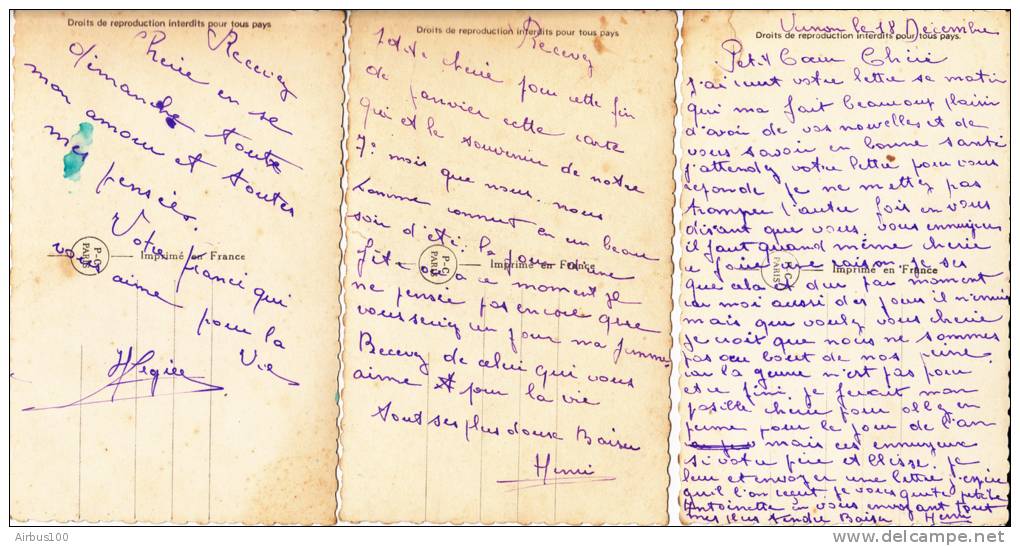 Droits de reproduction interdits pour tous pays
Recevez
Cherie en se
dimanche toute
mon amour et toutes
mes pensées.
Votre fiancé qui
P-C
PARIS
Imprimé en France
vous aime pour la
Vie
Droits de reproduction interdits pour tous pays
Recevez
cherie pour cette fin
de janvier cette carte
qui et le souvenir de notre
7e mois que nous nous
somme connut en un beau
soir d'été. le jour d'une
P-C
PARIS
Imprimé en France
fête a ce moment je
ne pensée pas encore que
vous seriez un jour ma femme
Recevez de celui qui vous
aime pour la vie
tout ses plus doux Baiser
Henri
Vernon le 18 Décembre
Droits de reproduction interdits pour tous pays.
Petit Coeur Chérie
j'ai reçut votre lettre se matin
qui ma fait beaucoup plaisir
d'avoir de vos nouvelles et de
vous savoir en bonne santé
j'attendez votre lettre pour vous
reponde je ne mettez pas
tromper l'autre fois en vous
disant que vous vous ennuyez
il faut quand même cherie
ce faire une raison je ses
PARIS
Imprimé en France
que cela et dur par moment
car moi aussi des jours il n'ennuie
mais que voulez vous cherie
je croit que nous ne sommes
pas au bout de nos peine
car la guerre n'est pas pour
etre fini. je ferait mon
posible cherie pour allez en
perme pour le jour de l'an
mais ces ennuyeux
si votre père et
leur et envoyer une lettre j'espère
qu'il l'on reçut. je vous quitte petite
Antoinette en vous envoyant tout
mes plus tendre Baiser Henri
Airbus100
www.delcampe.net